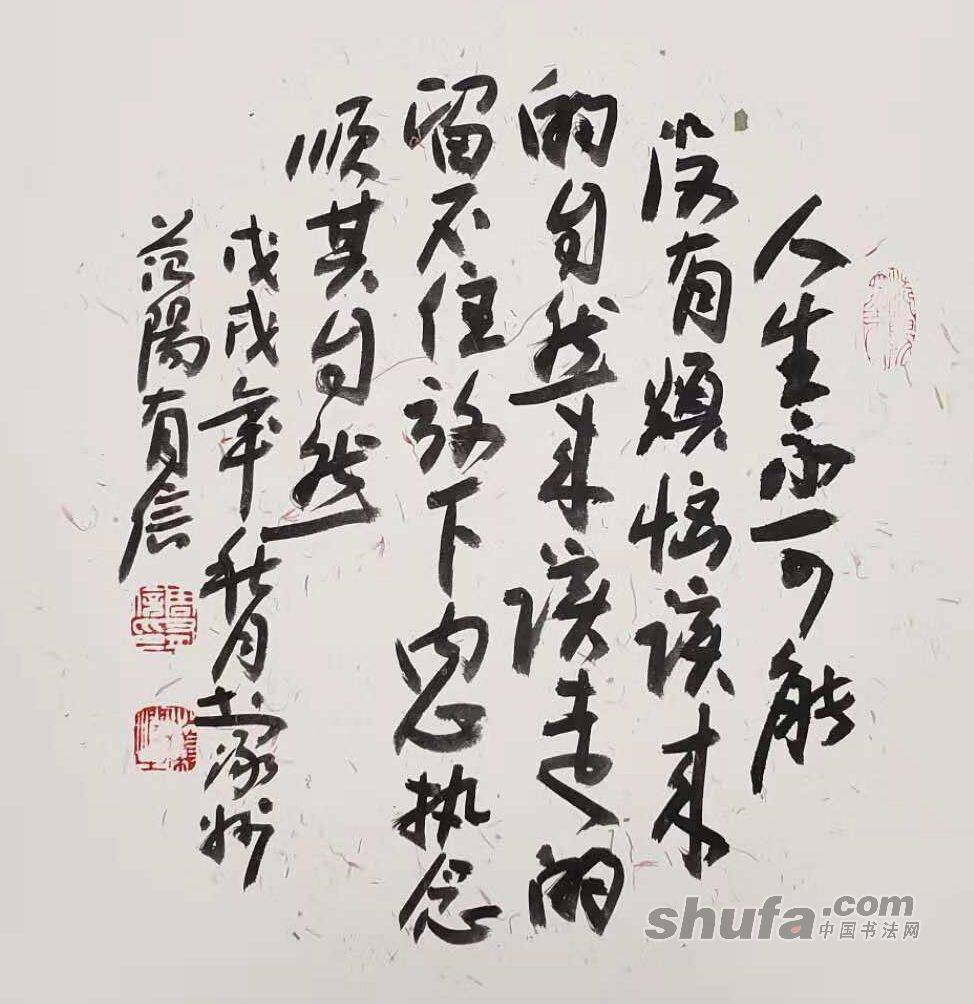 人生不可能
没有烦恼该来
的自然来该走的
留不住放下内心执念
顺其自然
戊戌年秋月
范阳有信
shufa.com
中国书法网